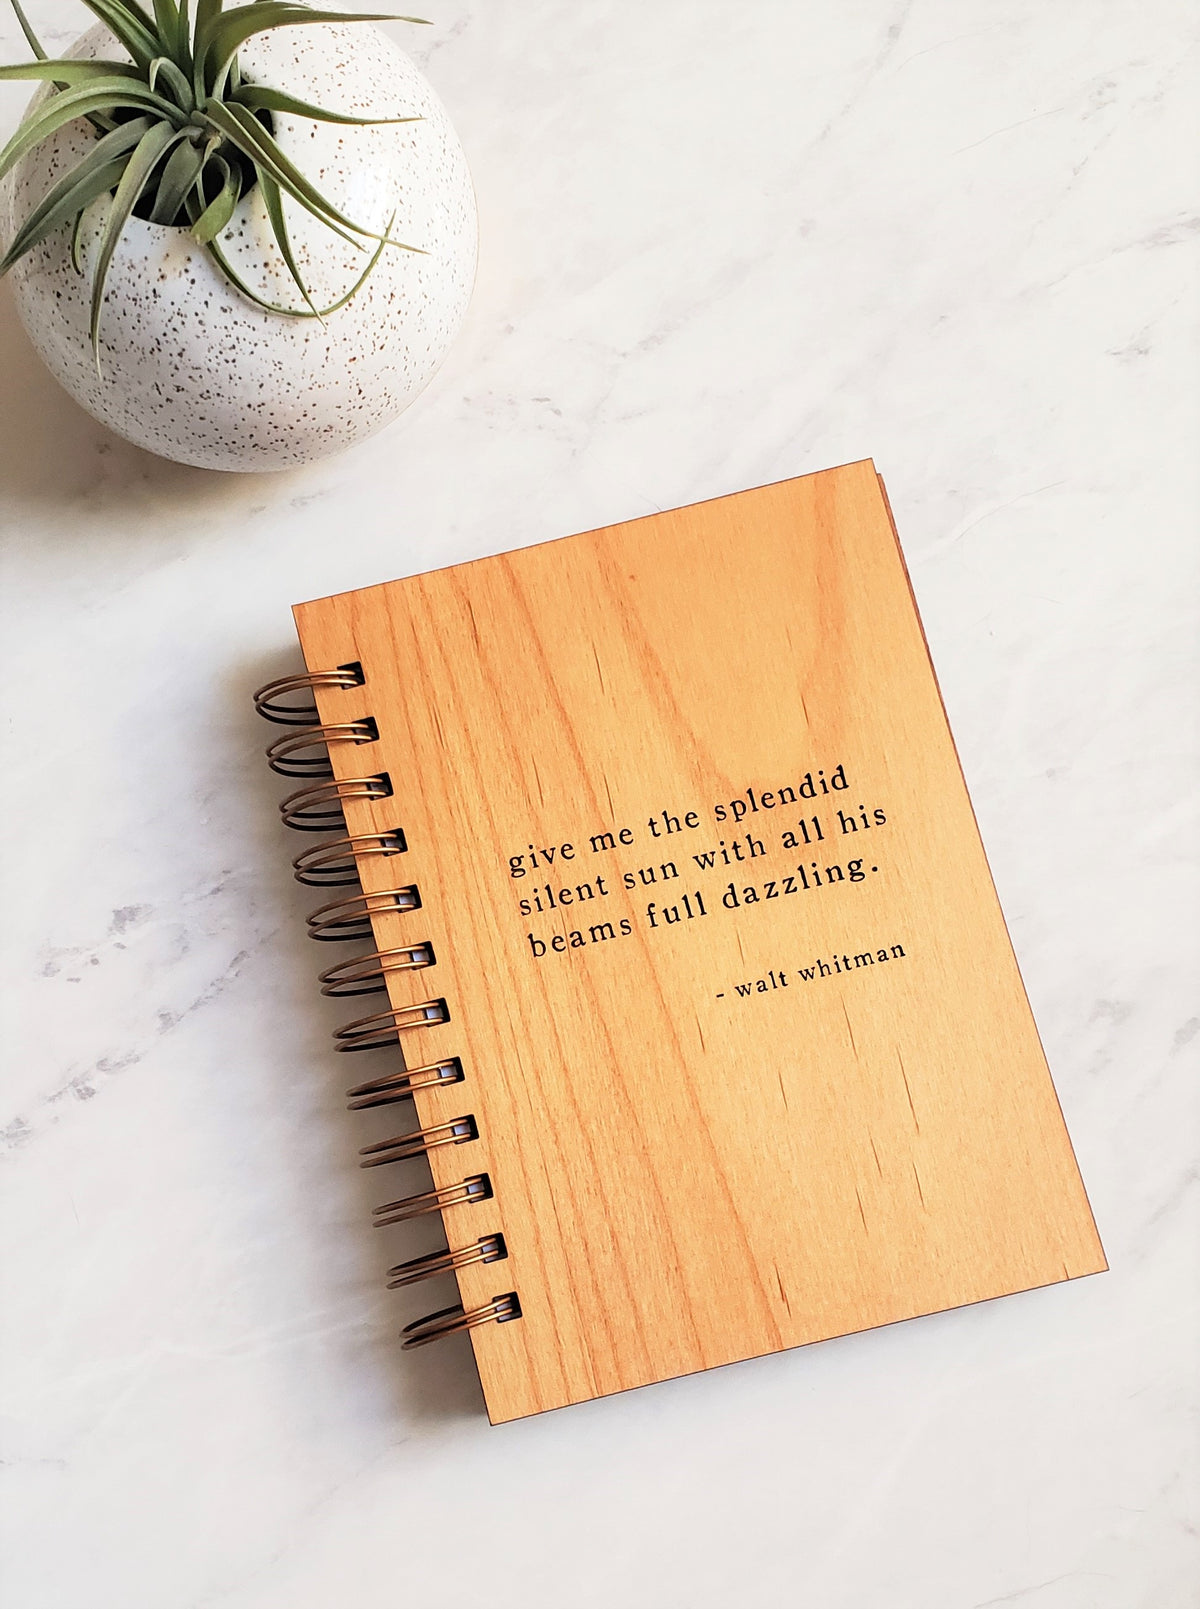 give me the splendid
silent sun with all his
beams full dazzling.
- walt whitman